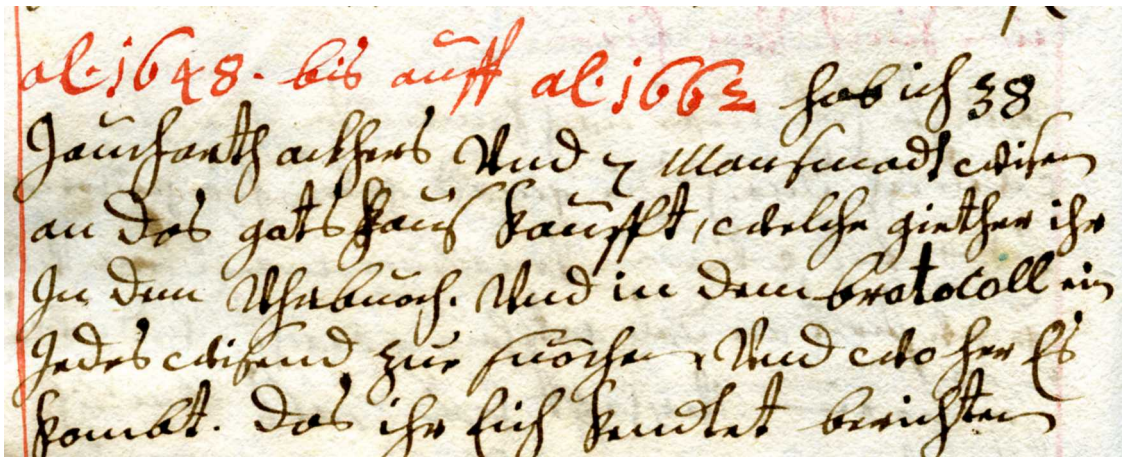 al. 1648. bis auff al. 1662 hab ich 38
Jaucharth ackhers Vnd 7 Mansmadt wisen
an das gatshaus kaufft, welche giether ihr
In dem Vhrbuoch. Vnd in dem brotocoll ein
Jedes wisend zue suochen, Vnd wo her Es
kombt. das ihr Eich kendtet berichten